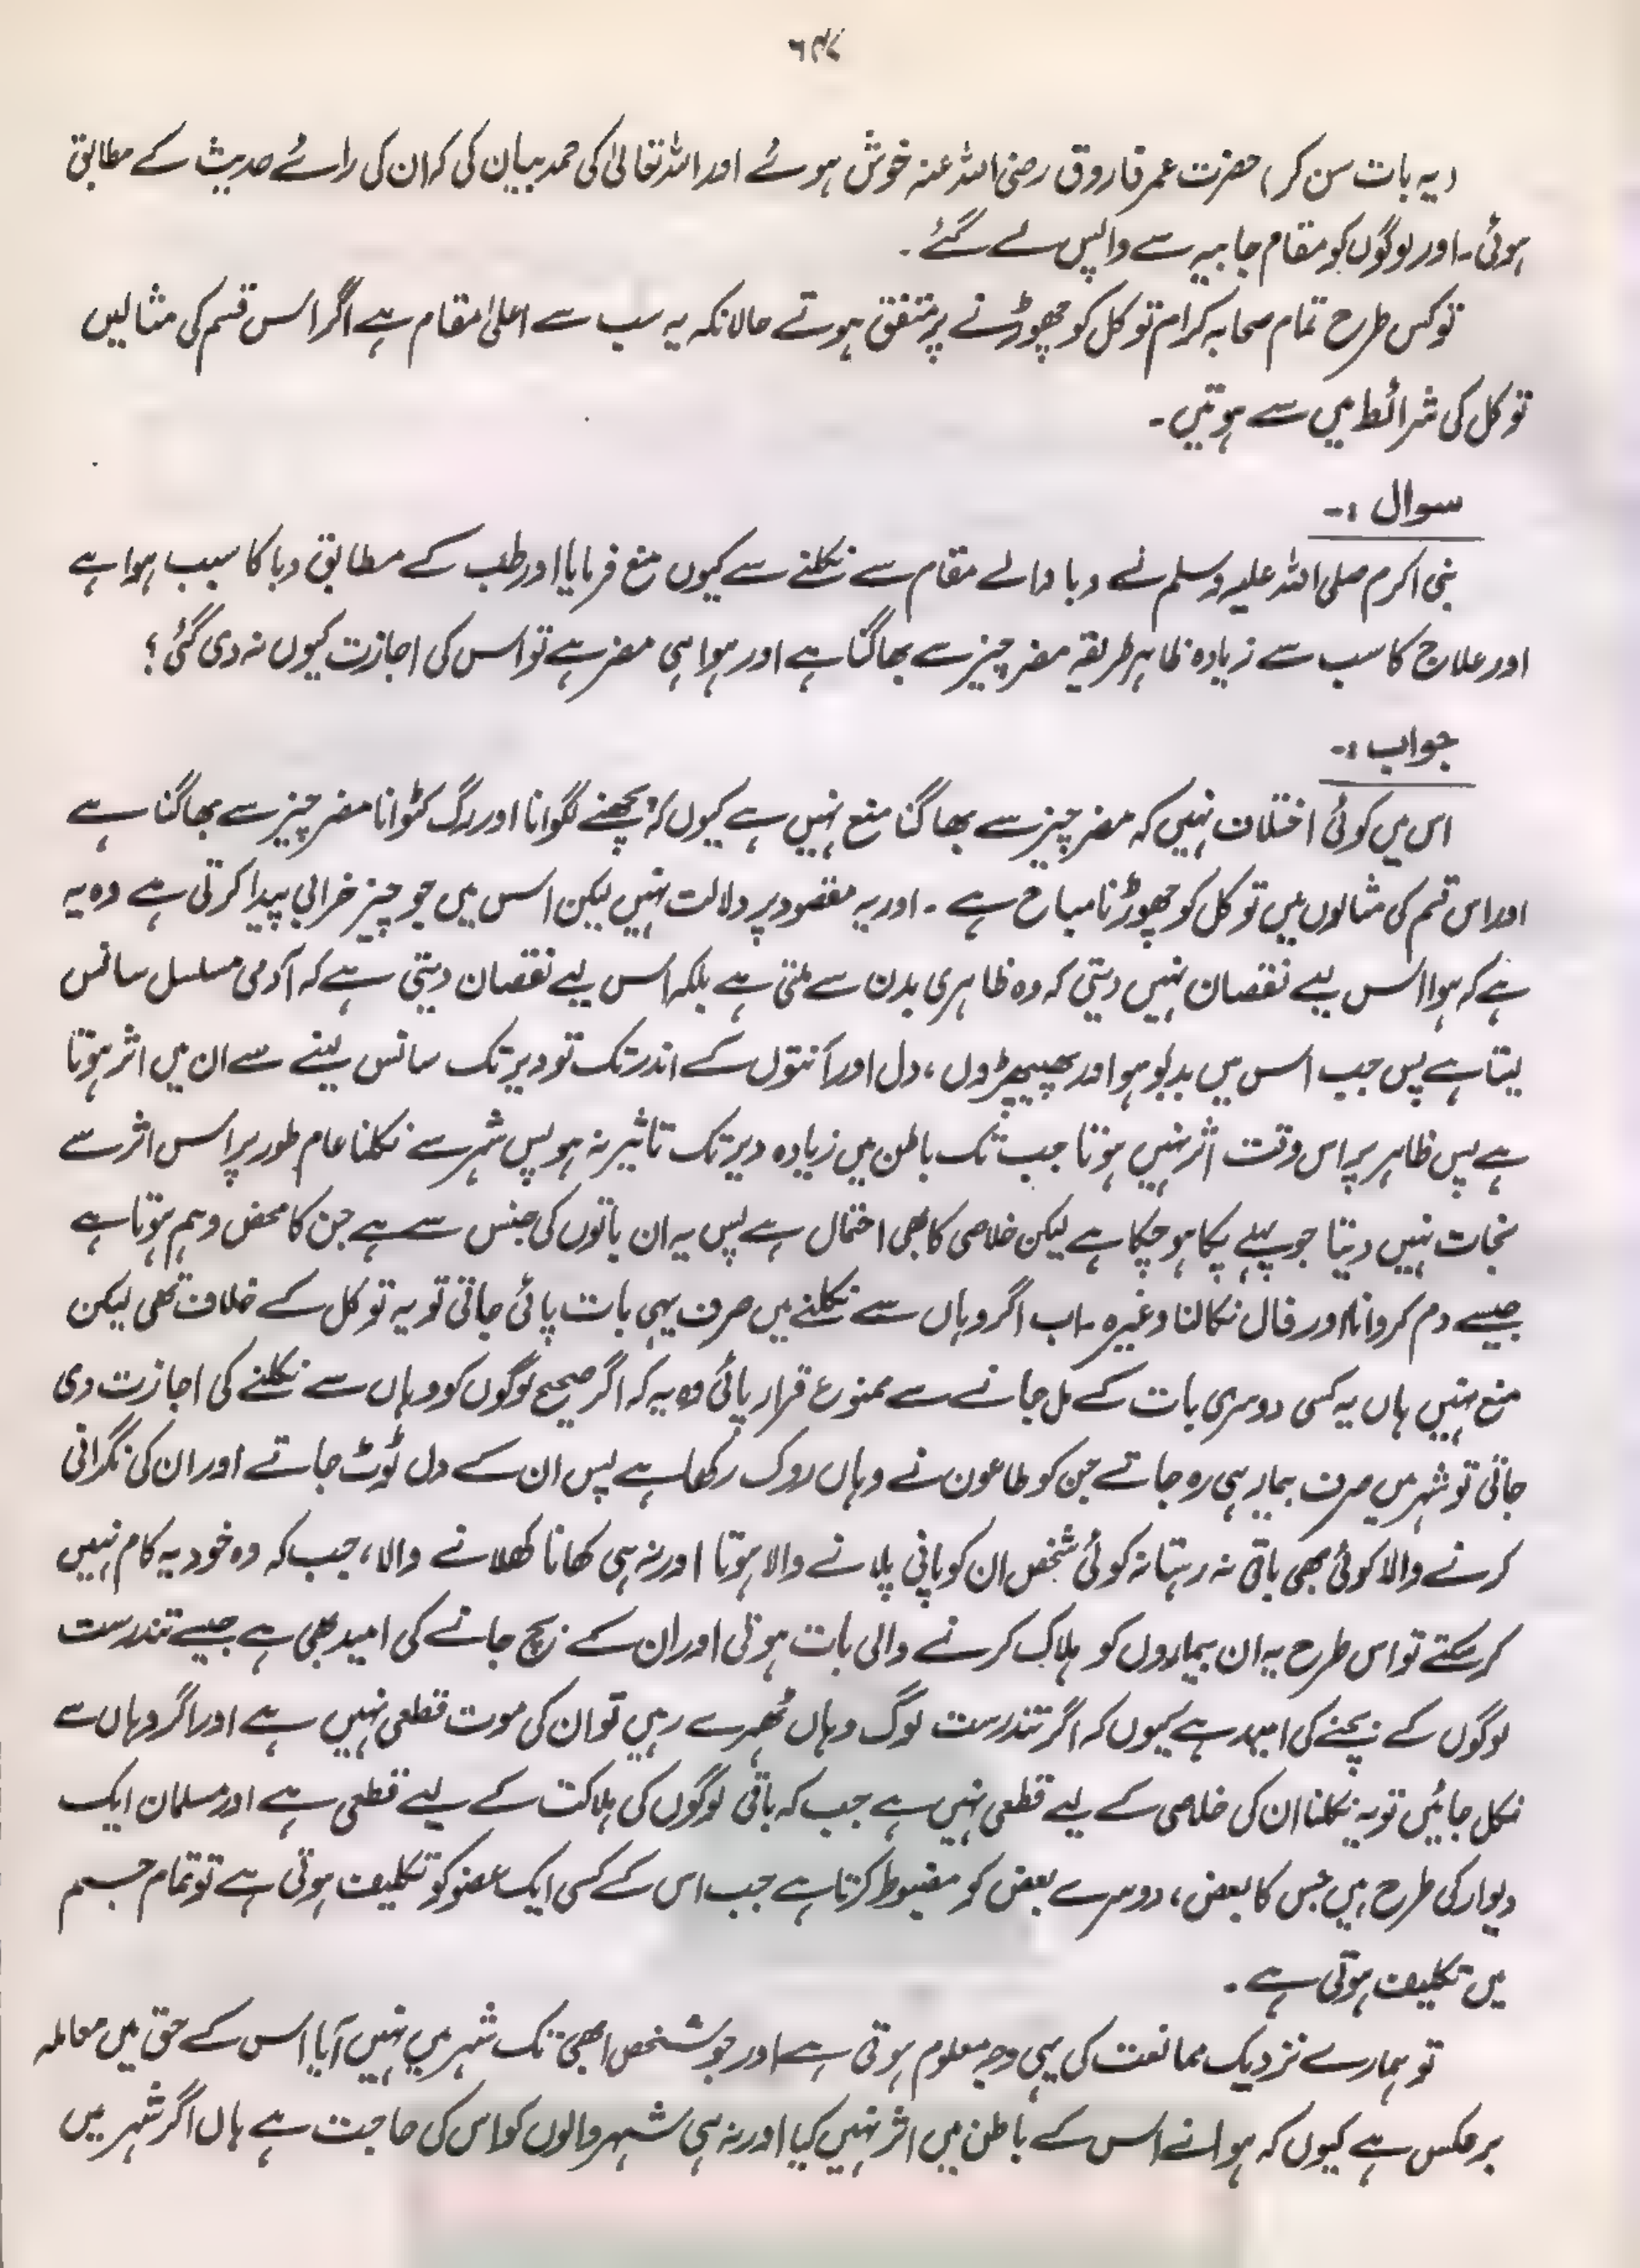 ۶۴۷
(یہ بات سن کر) حضرت عمر فاروق رضی اللہ عنہ خوش ہوئے اور اللہ تعالیٰ کی حمد بیان کی کہ ان کی رائے حدیث کے مطابق
ہوئی۔ اور لوگوں کو مقام جابیہ سے واپس لے گئے۔
تو کس طرح تمام صحابہ کرام توکل کو چھوڑنے پر متفق ہوتے حالانکہ یہ سب سے اعلیٰ مقام ہے اگر اس قسم کی مثالیں
توکل کی شرائط میں سے ہوتیں۔
سوال :-
نبی اکرم صلی اللہ علیہ وسلم نے وبا والے مقام سے نکلنے سے کیوں منع فرمایا اور طب کے مطابق وبا کا سبب ہوا ہے
اور علاج کا سب سے زیادہ ظاہر طریقہ مضر چیز سے بھاگنا ہے اور ہوا ہی مضر ہے تو اس کی اجازت کیوں نہ دی گئی؟
جواب :-
اس میں کوئی اختلاف نہیں کہ مضر چیز سے بھاگنا منع نہیں ہے کیوں کہ پچھنے لگوانا اور رگ کٹوانا مضر چیز سے بھاگنا ہے
اور اس قسم کی مثالوں میں توکل کو چھوڑنا مباح ہے۔ اور یہ مقصود پر دلالت نہیں لیکن اس میں جو چیز خرابی پیدا کرتی ہے وہ یہ
ہے کہ ہوا اس لیے نقصان نہیں دیتی کہ وہ ظاہری بدن سے ملتی ہے بلکہ اس لیے نقصان دیتی ہے کہ آدمی مسلسل سانس
لیتا ہے پس جب اس میں بدبو ہو اور پھیپھڑوں، دل اور آنتوں کے اندر تک تو دیر تک سانس لینے سے ان میں اثر ہوتا
ہے پس ظاہر پر اس وقت اثر نہیں ہوتا جب تک باطن میں زیادہ دیر تک تاثیر نہ ہو پس شہر سے نکلنا عام طور پر اس اثر سے
نجات نہیں دیتا جو پہلے پکا ہو چکا ہے لیکن خلاصی کا بھی احتمال ہے پس یہ ان باتوں کی جنس سے ہے جن کا محض وہم ہوتا ہے
جیسے دم کروانا اور فال نکالنا وغیرہ۔ اب اگر وہاں سے نکلنے میں صرف یہی بات پائی جاتی تو یہ توکل کے خلاف تھی لیکن
منع نہیں ہاں یہ کسی دوسری بات کے مل جانے سے ممنوع قرار پائی وہ یہ کہ اگر صحیح لوگوں کو وہاں سے نکلنے کی اجازت دی
جاتی تو شہر میں صرف بیمار ہی رہ جاتے جن کو طاعون نے وہاں روک رکھا ہے پس ان کے دل ٹوٹ جاتے اور ان کی نگرانی
کرنے والا کوئی بھی باقی نہ رہتا نہ کوئی شخص ان کو پانی پلانے والا ہوتا اور نہ ہی کھانا کھلانے والا، جب کہ وہ خود یہ کام نہیں
کر سکتے تو اس طرح یہ ان بیماروں کو ہلاک کرنے والی بات ہوتی اور ان کے بچ جانے کی امید بھی ہے جیسے تندرست
لوگوں کے بچنے کی امید ہے کیوں کہ اگر تندرست لوگ وہاں ٹھہرے رہیں تو ان کی موت قطعی نہیں ہے اور اگر وہاں سے
نکل جائیں تو یہ نکلنا ان کی خلاصی کے لیے قطعی نہیں ہے جب کہ باقی لوگوں کی ہلاکت کے لیے قطعی ہے اور مسلمان ایک
دیوار کی طرح ہیں جس کا بعض، دوسرے بعض کو مضبوط کرتا ہے جب اس کے کسی ایک عضو کو تکلیف ہوتی ہے تو تمام جسم
میں تکلیف ہوتی ہے۔
تو ہمارے نزدیک ممانعت کی یہی وجہ معلوم ہوتی ہے اور جو شخص ابھی تک شہر میں نہیں آیا اس کے حق میں معاملہ
برعکس ہے کیوں کہ ہوا نے اس کے باطن میں اثر نہیں کیا اور نہ ہی شہر والوں کو اس کی حاجت ہے ہاں اگر شہر میں